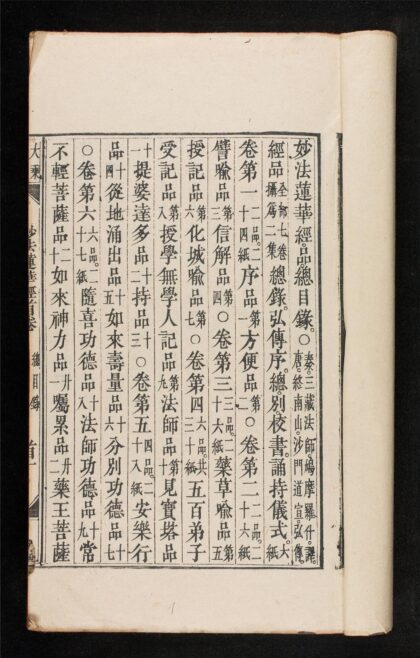 妙法蓮華經品總目錄。○秦三藏法師鳩摩羅什譯。唐終南山沙門道宣弘傳。
經品全部七卷攝爲二集總錄。弘傳序。總別校書。誦持儀式。大
卷第一二品。二十四紙序品第一方便品第二○卷第二二品。二十六紙
譬喻品第三信解品第四○卷第三三品。二十六紙藥草喻品第五
授記品第六化城喻品第七○卷第四六品。共三十紙五百弟子
受記品第八授學無學人記品第九法師品第十見寶塔品
十一提婆達多品十二持品十三○卷第五四品。二十八紙安樂行
品十四從地涌出品十五如來壽量品十六分別功德品十七
○卷第六六品。二十七紙隨喜功德品十八法師功德品十九常
不輕菩薩品二十如來神力品廿一囑累品廿二藥王菩薩
大乘 妙法蓮華經首卷 總目錄 首一